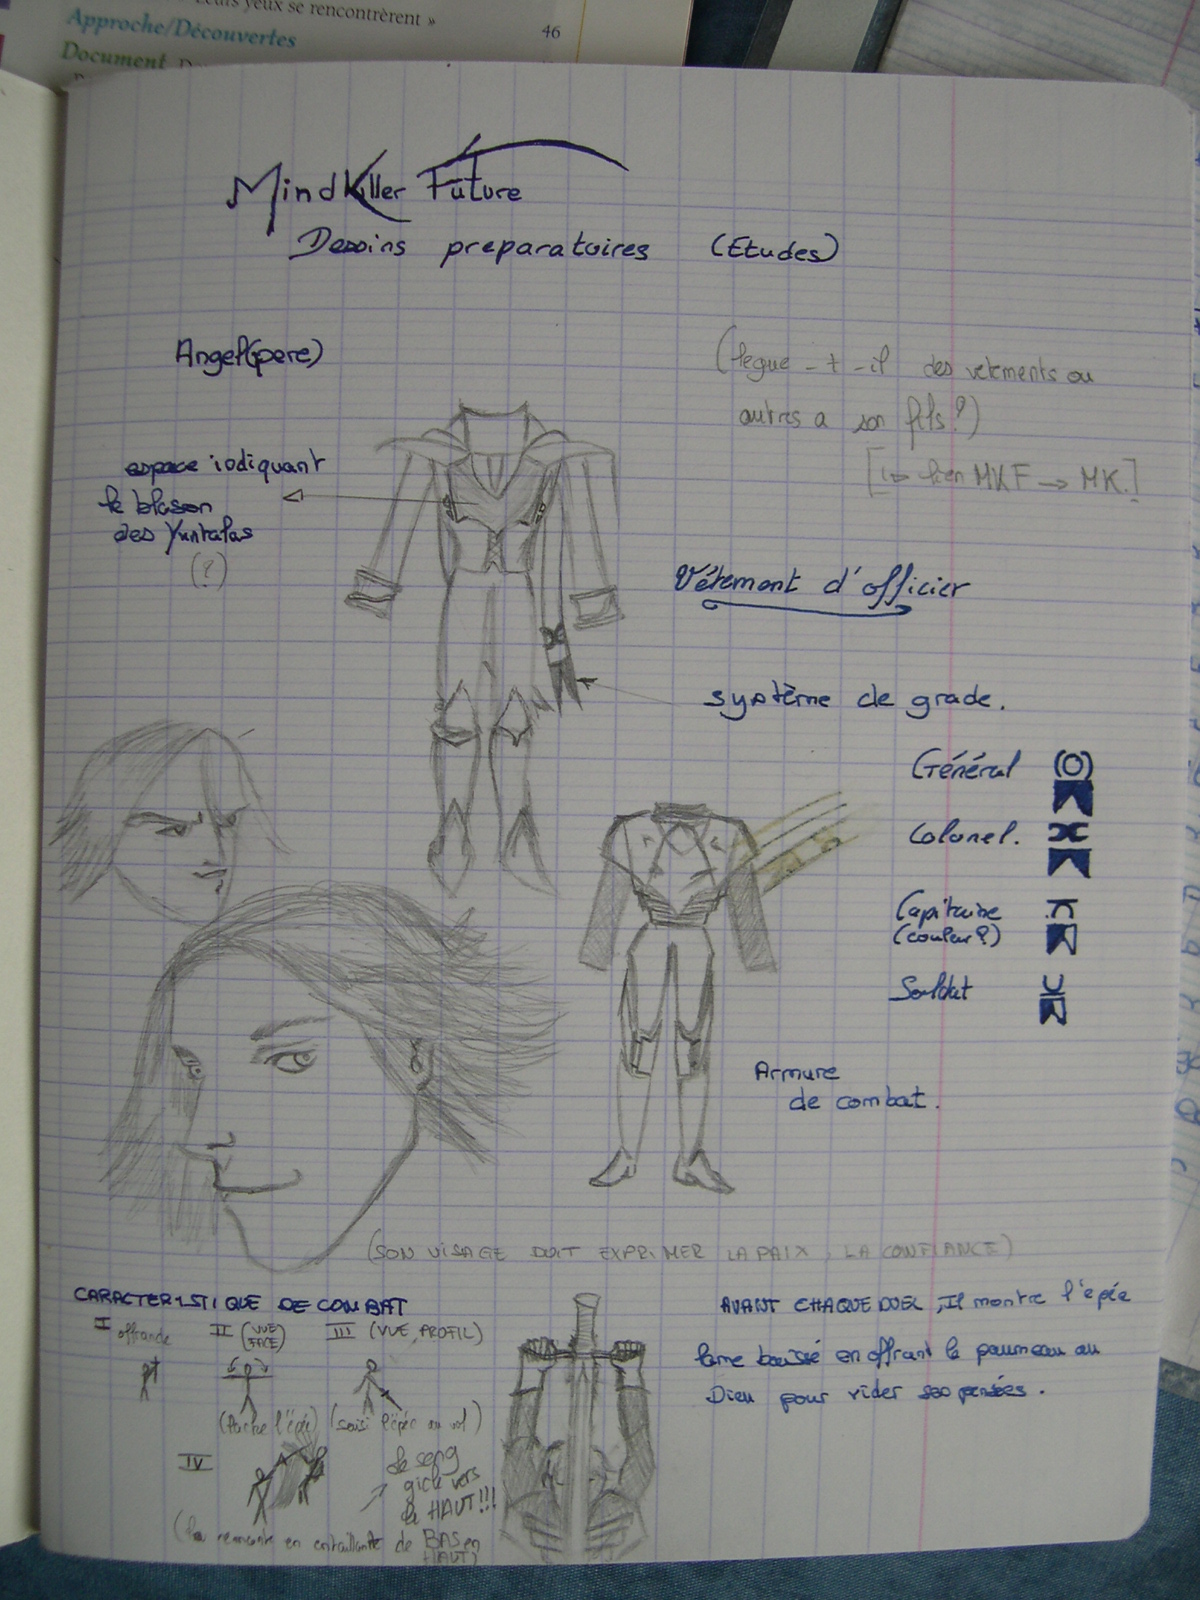 Leurs yeux se rencontrèrent »
Approche/Découvertes
46
Document
MindKiller Future
Dessins preparatoires (Etudes)
Angel(pere)
(legue-t-il des vetements ou
autres a son fils?)
[↳ lien MKF → MK.]
espace indiquant
le blason
des Yuntalas
(?)
Vêtement d'officier
système de grade.
Général
Colonel.
Capitaine
(couleur?)
Soldat
Armure
de combat.
(SON VISAGE DOIT EXPRIMER LA PAIX, LA CONFIANCE)
CARACTERISTIQUE DE COMBAT
I offrande
II (VUE FACE)
III (VUE PROFIL)
(lache l'épée)
(saisi l'épée au vol)
IV
le sang
gicle vers
le HAUT!!!
(la remonte en entaillant de BAS en
HAUT)
AVANT CHAQUE DUEL, Il montre l'épée
lame baissé en offrant le paumeau au
Dieu pour vider ses pensées.